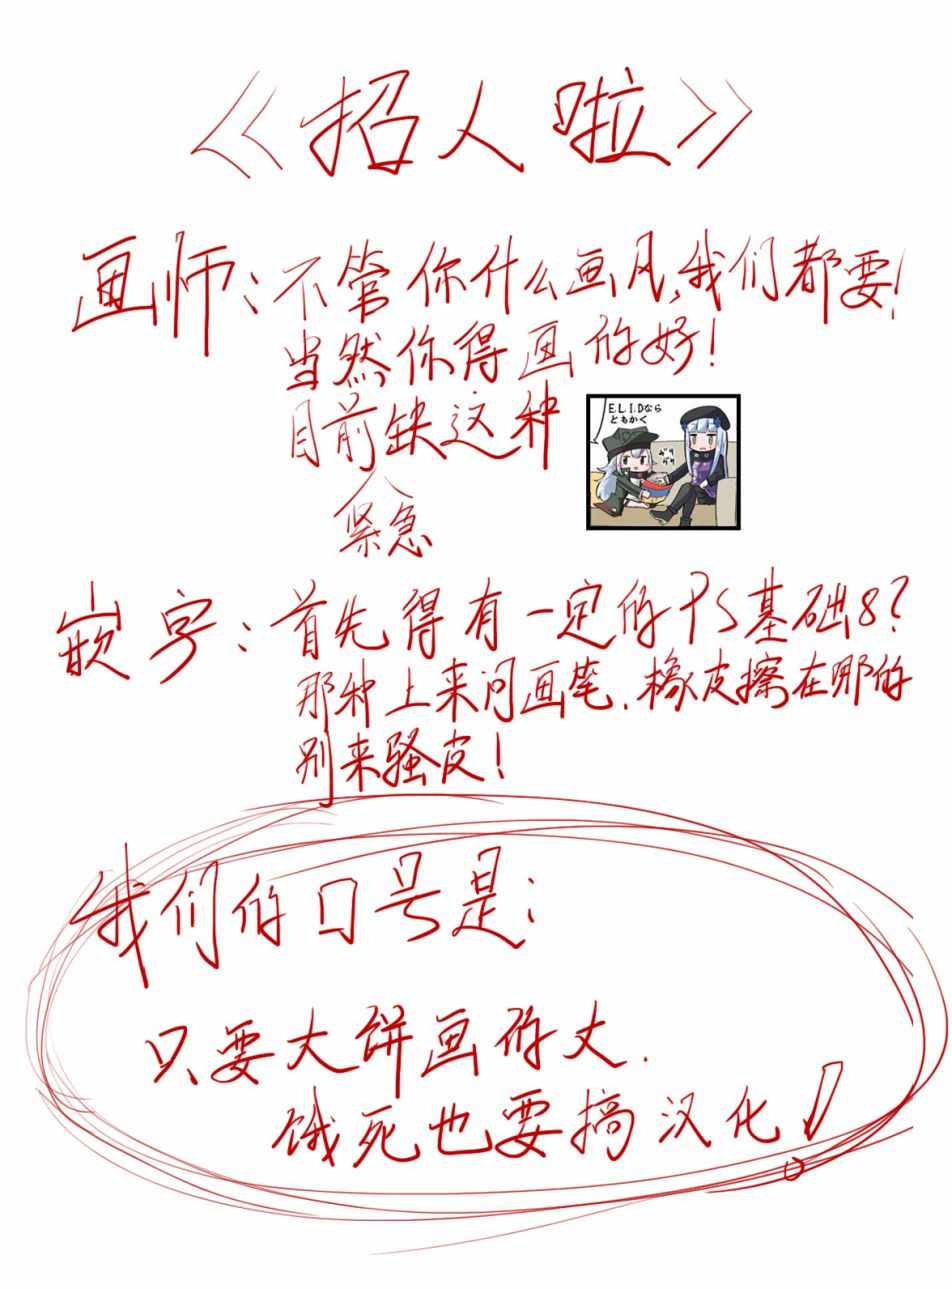 《招人啦》
画师:不管你什么画风,我们都要!
当然你得画的好!
目前缺这种
E.L.I.Dなら
ともかく
紧急
嵌字:首先得有一定的PS基础8?
那种上来问画笔.橡皮擦在哪的
别来骚皮!
我们的口号是:
只要大饼画的大.
饿死也要搞汉化!